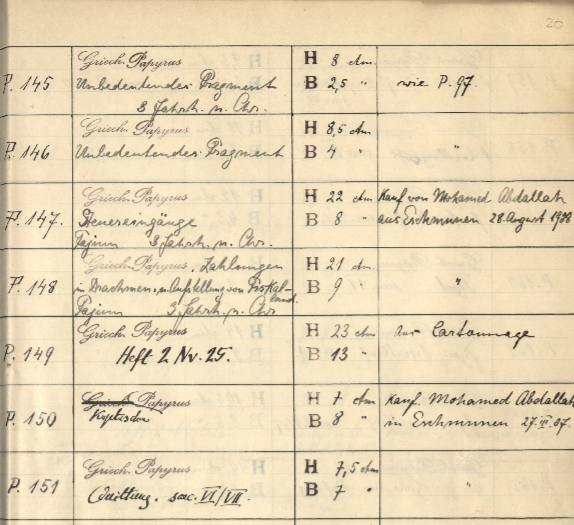 20
Griech. Papyrus H 8 ctm.
P. 145 Unbedeutendes Fragment B 2,5 " wie P. 97.
3 Jahrh. n. Chr.
Griech. Papyrus H 8,5 ctm
P. 146 Unbedeutendes Fragment B 4 " "
Griech. Papyrus H 22 ctm Kauf von Mohamed Abdallah
P. 147. Steuereingänge B 8 " aus Eschmunen 28. August 1908
Fajum 3 Jahrh. n. Chr.
Griech. Papyrus, Zahlungen H 21 ctm.
P. 148 in Drachmen, u. Aufstellung von B 9 "
Fajum 3 Jahrh. n. Chr.
Griech. Papyrus H 23 ctm aus Cartonnage
P. 149 Heft 2 Nr. 25. B 13 "
Griech. Papyrus H 7 ctm Kauf Mohamed Abdallah
P. 150 B 8 " in Eschmunen 27. 07.
Griech. Papyrus H 7,5 ctm
P. 151 Quittung. saec. VI/VII. B 7 " "